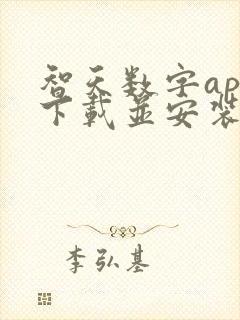 智天数字ap
下载並安装
李弘基